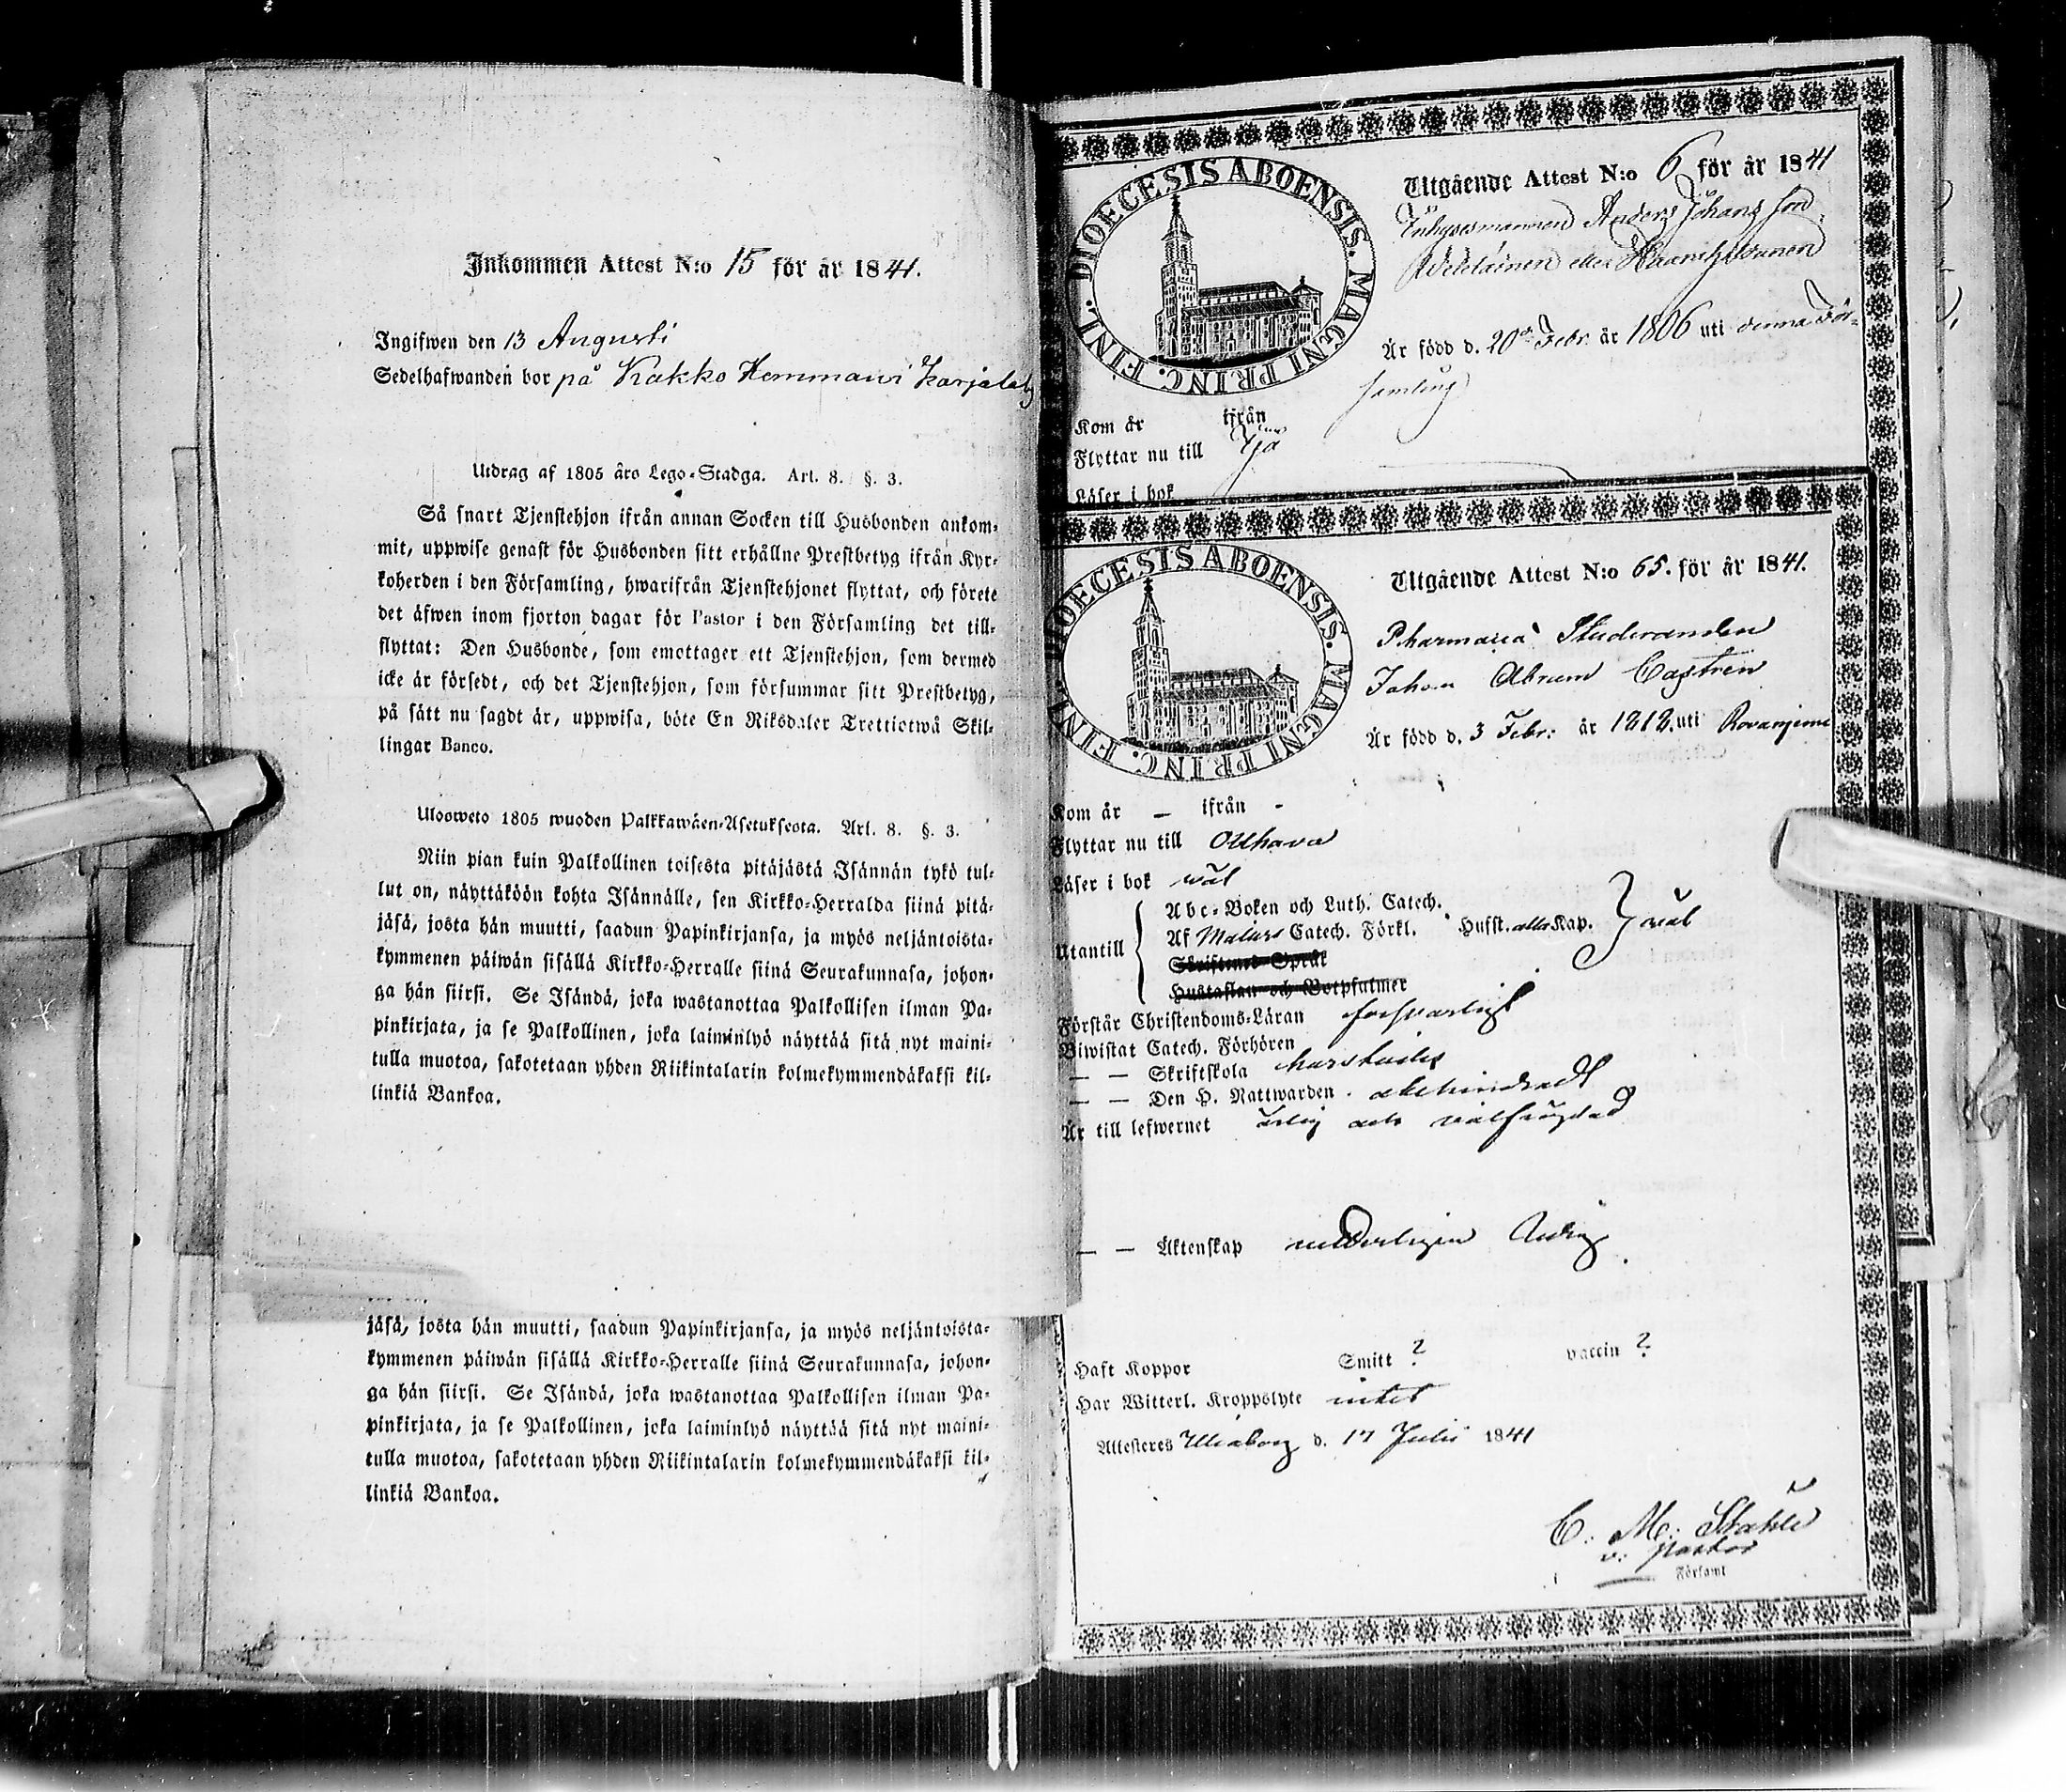 Inkommen Attest N:o 15 för år 1841.
Ingifwen den 13 Augusti
Sedelhafwanden bor på Kakko Hemman i Karjalaby
Utdrag af 1805 års Lego-Stadga. Art. 8. §. 3.
Så snart Tjenstehjon ifrån annan Socken till Husbonden ankom-
mit, uppwise genast för Husbonden sitt erhållne Prestbetyg ifrån Kyr-
koherden i den Församling, hwarifrån Tjenstehjonet flyttat, och förete
det äfwen inom fjorton dagar för Pastor i den Församling det till-
flyttat: Den Husbonde, som emottager ett Tjenstehjon, som dermed
icke är försedt, och det Tjenstehjon, som försummar sitt Prestbetyg,
på sätt nu sagdt är, uppwisa, böte En Riksdaler Trettiotwå Skil-
lingar Banco.
Ulosweto 1805 wuoden Palkkawäen-Asetuksesta. Art. 8. §. 3.
Niin pian kuin Palkollinen toisesta pitäjästä Isännän tykö tul-
lut on, näyttäköön kohta Isännälle, sen Kirkko-Herralda siinä pitä-
jäsä, josta hän muutti, saadun Papinkirjansa, ja myös neljäntoista-
kymmenen päiwän sisällä Kirkko-Herralle siinä Seurakunnasa, johon-
ga hän siirsi. Se Isändä, joka wastanottaa Palkollisen ilman Pa-
pinkirjata, ja se Palkollinen, joka laiminlyö näyttää sitä nyt maini-
tulla muotoa, sakotetaan yhden Riikintalarin kolmekymmendäkaksi kil-
linkiä Bankoa.
jäsä, josta hän muutti, saadun Papinkirjansa, ja myös neljäntoista-
kymmenen päiwän sisällä Kirkko-Herralle siinä Seurakunnasa, johon-
ga hän siirsi. Se Isändä, joka wastanottaa Palkollisen ilman Pa-
pinkirjata, ja se Palkollinen, joka laiminlyö näyttää sitä nyt maini-
tulla muotoa, sakotetaan yhden Riikintalarin kolmekymmendäkaksi kil-
linkiä Bankoa.
DIOECESIS ABOENSIS. MAGNI PRINC. FINL.
Utgående Attest N:o 6 för år 1841
Inhysesmannen Anders Johansson
eller
Är född d. 20de Febr. år 1806 uti denna För-
samling
Kom år ifrån
Flyttar nu till Ijo
Läser i bok
DIOECESIS ABOENSIS. MAGNI PRINC. FINL.
Utgående Attest N:o 65. för år 1841.
Pharmacia Studeranden
Johan Abram Castrén
Är född d. 3 Febr: år 1818. uti Rovaniemi
Kom år – ifrån -
Flyttar nu till
Läser i bok wäl
Utantill
Abc-Boken och Luth. Catech.
Af Catech. Förkl. Hufst. alla Kap. wäl
Skriftenes Språk
Hustaflan och Botpsalmer
Förstår Christendoms-Läran försvarligt
Biwistat Catech. Förhören
— — Skriftskola
— — Den H. Nattwarden . obehindradt
Är till lefwernet ärlig och välfrägdad
— — Äktenskap ledig
Haft Koppor Smitt ? vaccin ?
Har Witterl. Kroppslyte intet
Attesteras Uleåborg d. 17 Julii 1841
C. M. Ståhle
v. Pastor
Församl